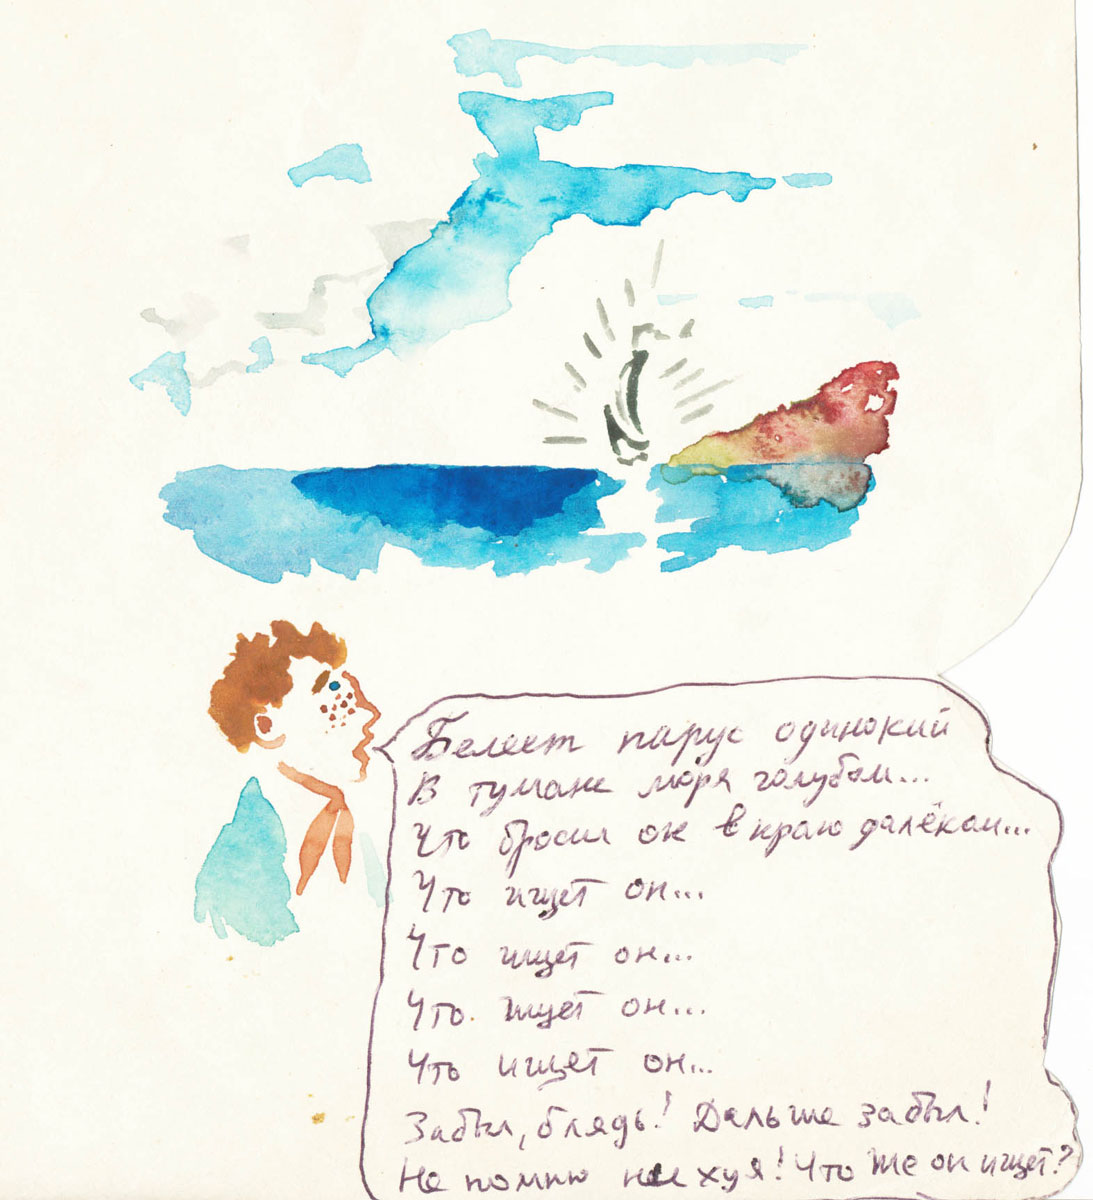 Белеет парус одинокий
В тумане моря голубом...
Что бросил он в краю далёком...
Что ищет он...
Что ищет он...
Что ищет он...
Что ищет он...
Забыл, блядь! Дальше забыл!
Не помню ни хуя! Что же он ищет?